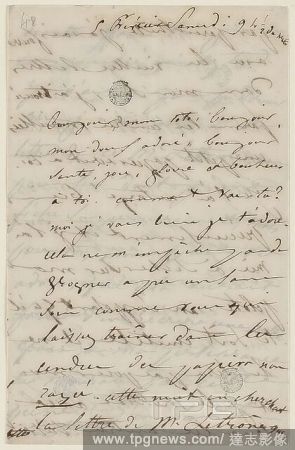 48
Samedi 9h ½ du
bonjour, mon toto, bonjour
mon doux adoré, bonjour
santé, joie, gloire et bonheur
à toi. comment vas-tu ?
moi je vais bien, je t'adore
cela ne m'empêche pas de
grogner après un
comme vous qui
laissez traîner dans les
cendres des papiers non
rayé. cette nuit en cherchant
la lettre de Mr
TPG
www.tpgnews.com/ 達志影像